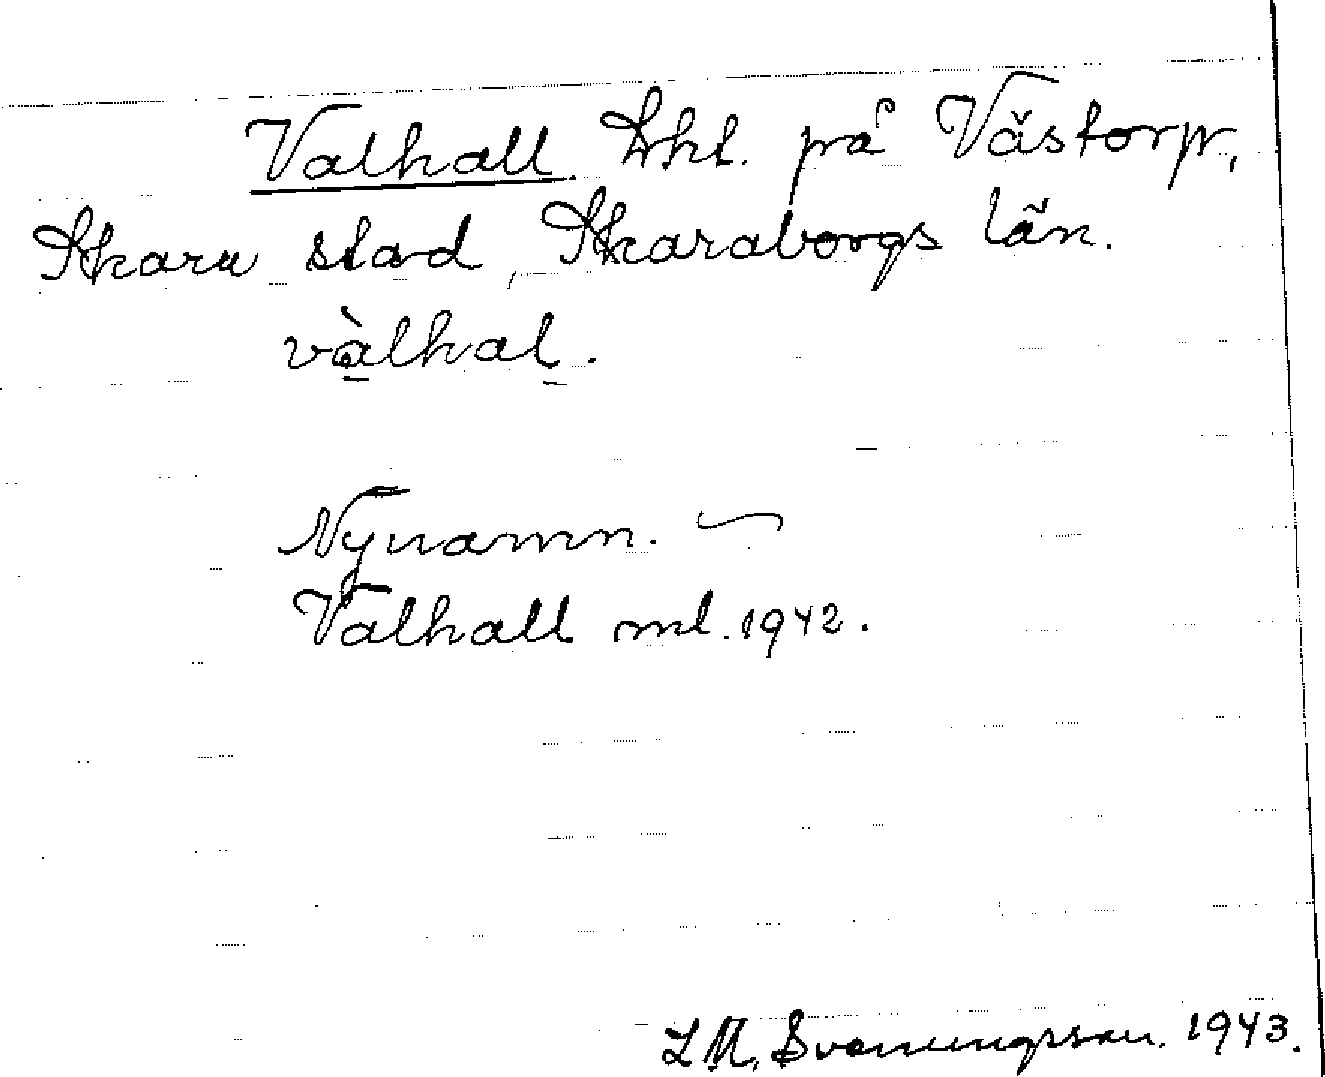 Valhall. Lht. på Västorp,
Skara stad, Skaraborgs län.
vàlhal.
Nynamn. ⁓
Valhall ml. 1942.
L M, Svenungsson. 1943.